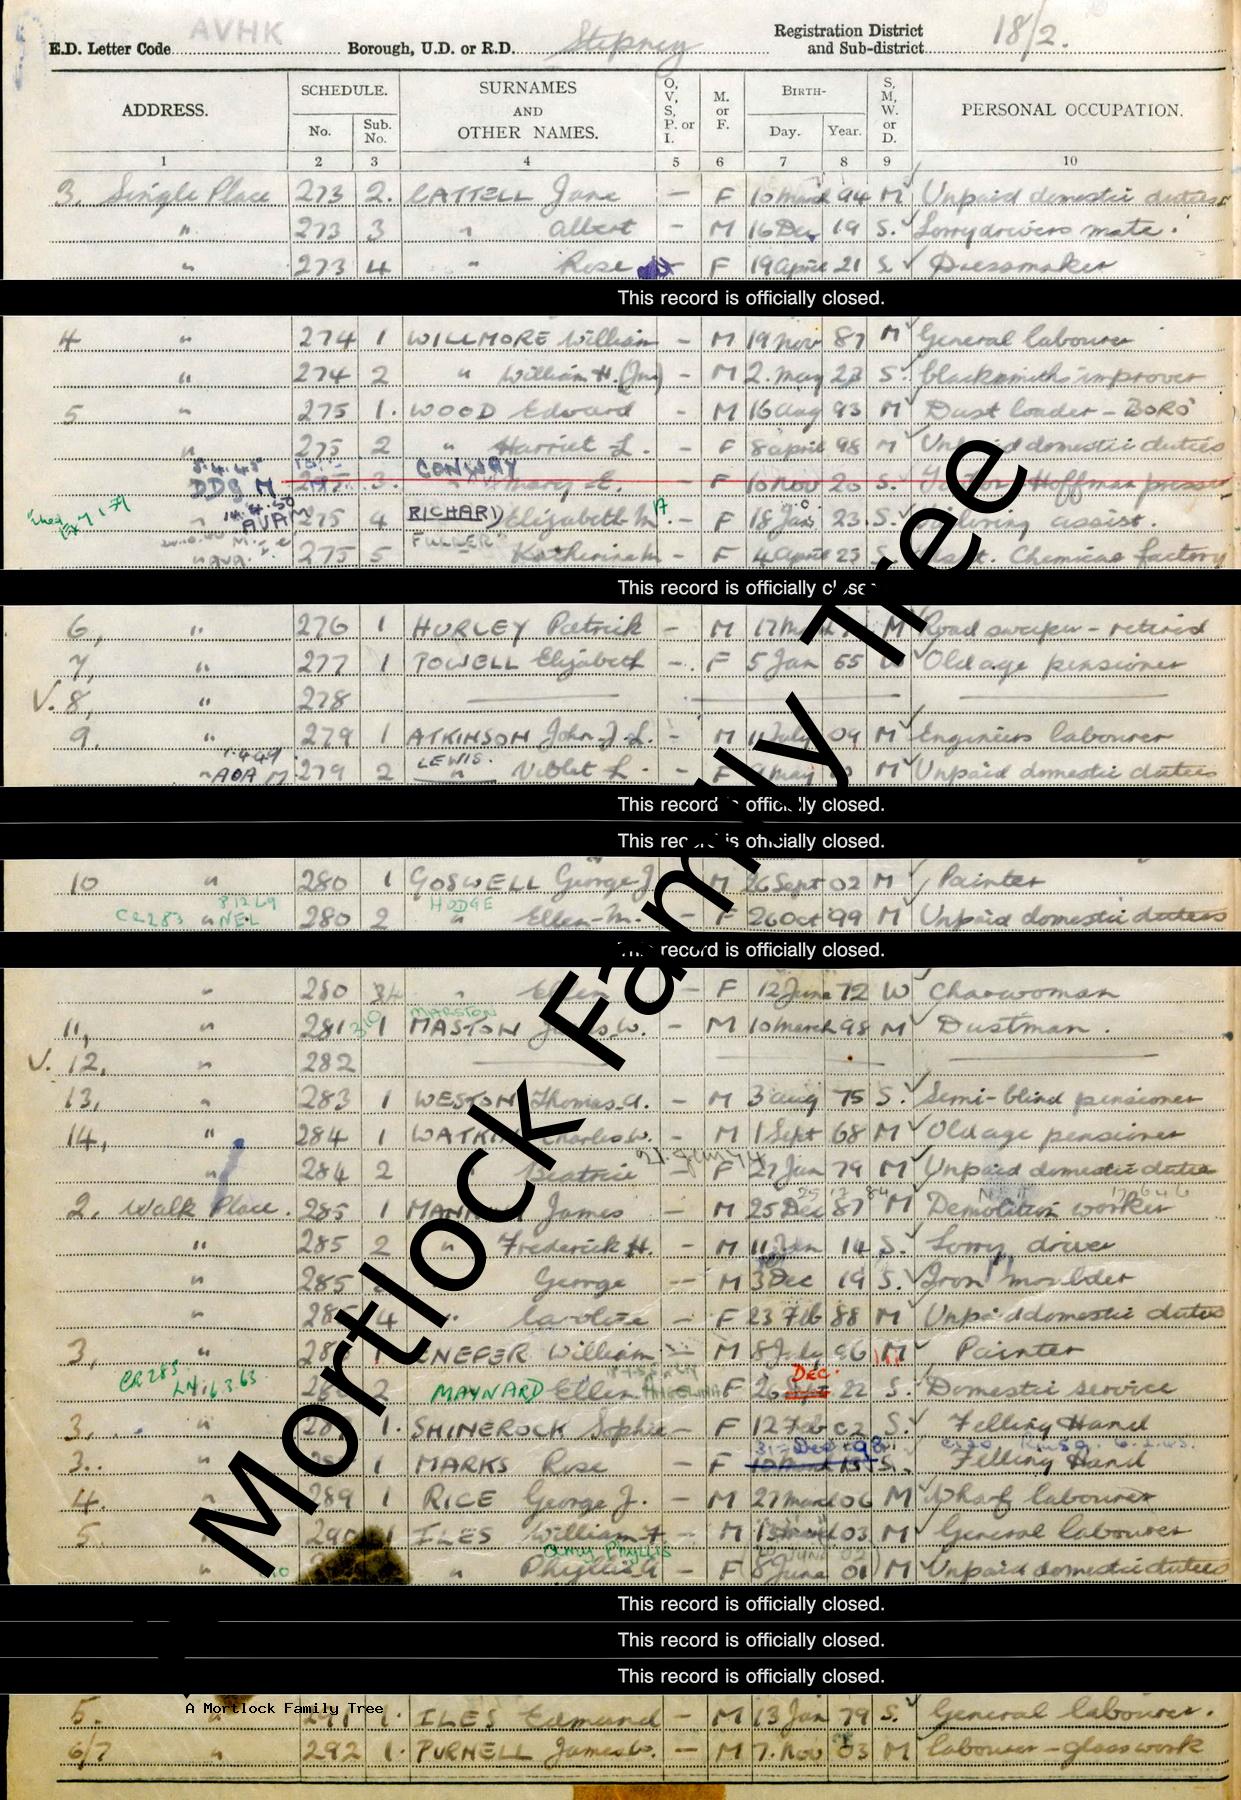 AVHK
18/2.
E.D. Letter Code Borough, U.D. or R.D. Stepney Registration District and Sub-district
ADDRESS. SCHEDULE. No. Sub. No. SURNAMES AND OTHER NAMES. O, V, S, P. or I. M. or F. BIRTH- Day. Year. S, M, W. or D. PERSONAL OCCUPATION.
1 2 3 4 5 6 7 8 9 10
3. Single Place 273 2. CATTELL Jane — F 10 March 94 M Unpaid domestic duties
" 273 3 " Albert - M 16 Dec 19 S. Lorry drivers mate.
" 273 4 " Rose - F 19 April 21 S. Dressmaker
This record is officially closed.
4 " 274 1 WILLMORE William - M 19 Nov 87 M General labourer
" 274 2 " William H. (Jnr) - M 2. May 23 S. blacksmiths improver
5 " 275 1. WOOD Edward - M 16 Aug 93 M Dust loader - BORO
" 275 2 " Harriet L. - F 8 April 98 M Unpaid domestic duties
5.4.45 CONWAY
DDS M 275. 3. " Mary E. - F 10 Nov 20 S. Hoffman presser
14.4.50
AVAM 275 4 RICHARD Elizabeth M. F 18 Jan 23. S. assist.
FULLER
275 5 Katherine - F 4 April 23 S. Chemical factory
This record is officially closed.
6, " 276 1 HURLEY Patrick - M 17 M Road sweeper - retired
7, " 277 1 POWELL Elizabeth - F 5 Jan 65 Old age pensioner
V. 8, " 278
9. " 279 1 ATKINSON John J. L. - M 11 July 09 M Engineers labourer
LEWIS.
" AOA M 279 2 " Violet L. - F 9 May M Unpaid domestic duties
This record is officially closed.
This record is officially closed.
10 " 280 1 GOSWELL George J. M 26 Sept 02 M Painter
81269 HODGE
CR283 " NEL 280 2 " Ellen M. - F 26 Oct 99 M Unpaid domestic duties
This record is officially closed.
" 280 " Ellen F 12 June 72 W Charwoman
MARSTON
11, " 281 1 MASTON W. - M 10 March 98 M Dustman.
V. 12, " 282
13, " 283 1 WESTON Thomas A. - M 3 Aug 75 S. Semi-blind pensioner
14, " 284 1 WATKIN Charles W. - M 1 Sept 68 M Old age pensioner
" 284 2 Beatrice - F 27 Jan 79 M Unpaid domestic duties
2. Walk Place. 285 1 James - M 25 Dec 87 M Demolition worker
" 285 2 " Frederick H. - M 11 Jan 14 S. Lorry driver
" 285 George -- M 3 Dec 19 S. Iron moulder
" 285 4 " Caroline - F 23 Feb 88 M Unpaid domestic duties
3, " ENEFER William - M 8 July 96 M Painter
Dec.
CR283 LN 16363 2 MAYNARD Ellen F 26 Sept 22 S. Domestic service
3. " 1. SHINEROCK Sophie - F 12 Feb 02 S. Felling Hand
3. " 1 MARKS Rose - F S. Felling Hand
4. " 289 1 RICE George J. - M 27 March 06 M Wharf labourer
5. " 290 1 ILES William - M 03 M General labourer
Amy Phyllis
" " Phyllis - F 8 June 01 M Unpaid domestic duties
This record is officially closed.
This record is officially closed.
This record is officially closed.
5. " 291 1. ILES Edmund - M 13 Jan 79 S. General labourer.
6/7 " 292 1. PURNELL James - M 7. Nov 03 M labourer - glass work
A Mortlock Family Tree
Mortlock Family Tree